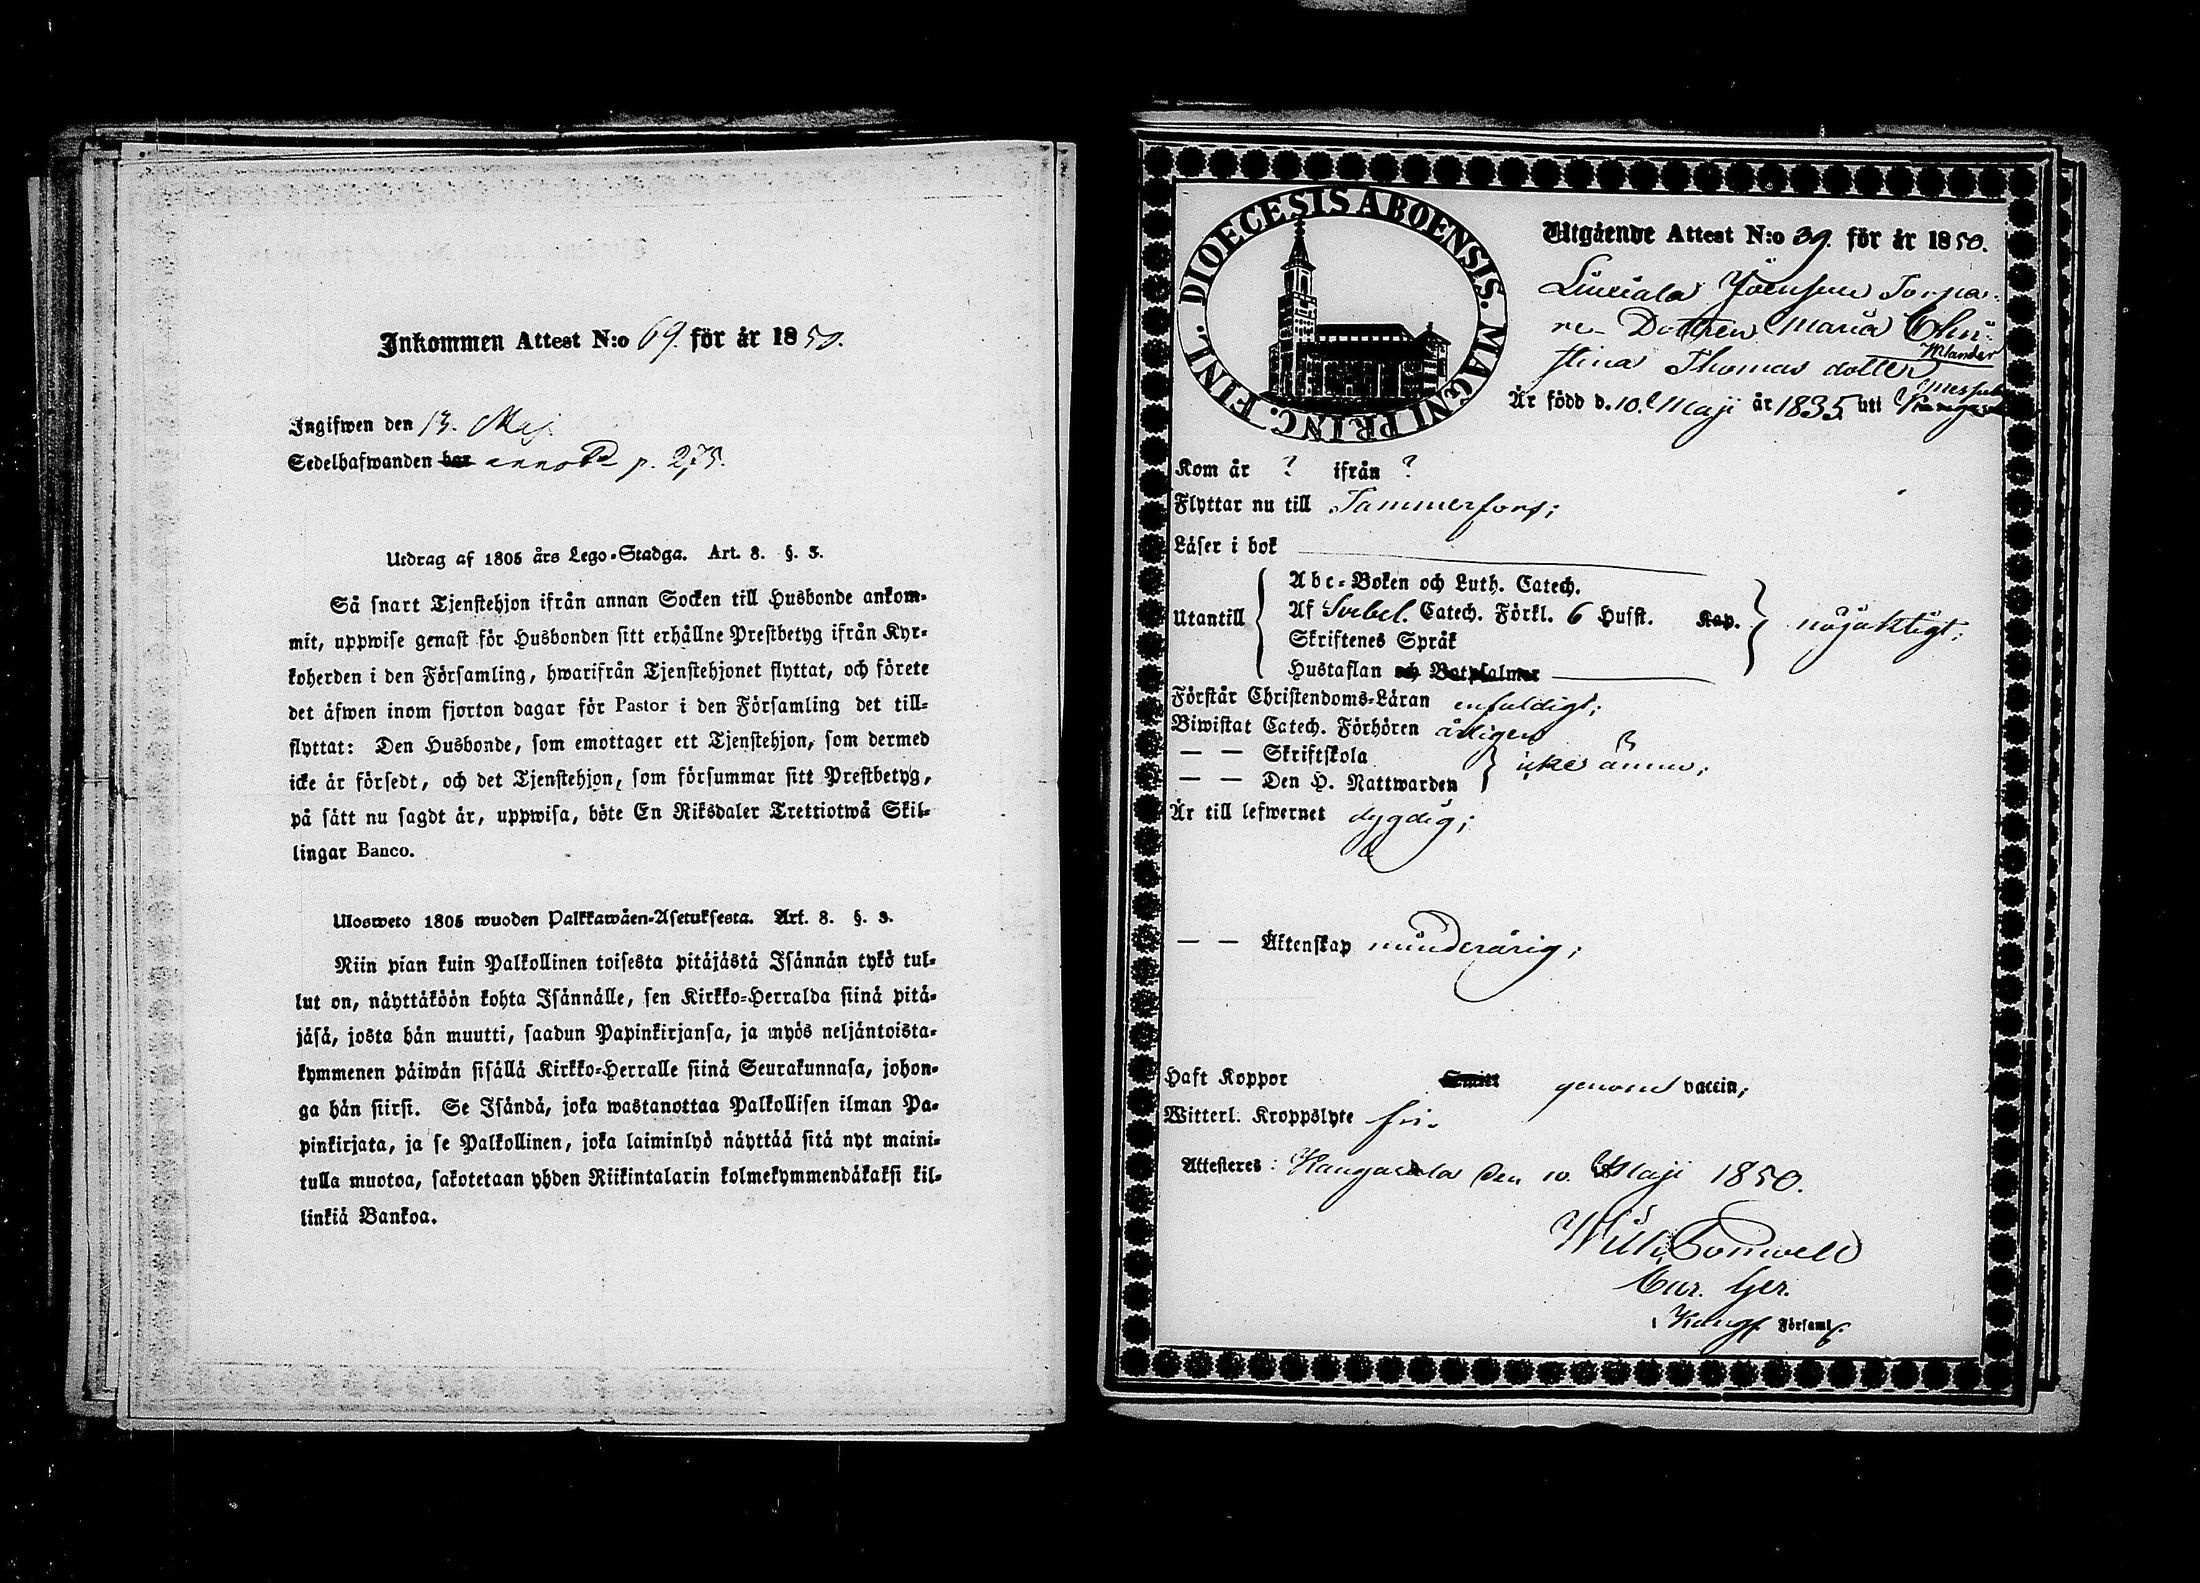 Inkommen Attest N:o 69. för år 1850.
Ingifwen den 13. Maj.
Sedelhafwanden har annot p. 275.
Utdrag af 1805 års Lego-Stadga. Art. 8. §. 3.
Så snart Tjenstehjon ifrån annan Socken till Husbonde ankom-
mit, uppwise genast för Husbonden sitt erhållne Prestbetyg ifrån Kyr-
koherden i den Församling, hwarifrån Tjenstehjonet flyttat, och förete
det äfwen inom fjorton dagar för Pastor i den Församling det till-
flyttat: Den Husbonde, som emottager ett Tjenstehjon, som dermed
icke är försedt, och det Tjenstehjon, som försummar sitt Prestbetyg,
på sätt nu sagdt är, uppwisa, böte En Riksdaler Trettiotwå Skil-
lingar Banco.
Ulosweto 1805 wuoden Palkkawäen-Asetuksesta. Art. 8. §. 3.
Niin pian kuin Palkollinen toisesta pitäjästä Isännän tykö tul-
lut on, näyttäköön kohta Isännälle, sen Kirkko-Herralda siinä pitä-
jäsä, josta hän muutti, saadun Papinkirjansa, ja myös neljäntoista-
kymmenen päiwän sisällä Kirkko-Herralle siinä Seurakunnasa, johon-
ga hän siirsi. Se Isändä, joka wastanottaa Palkollisen ilman Pa-
pinkirjata, ja se Palkollinen, joka laiminlyö näyttää sitä nyt maini-
tulla muotoa, sakotetaan yhden Riikintalarin kolmekymmendäkaksi kil-
linkiä Bankoa.
DIOECESIS ABOENSIS. MAGNI PRINC. FINL.
Utgående Attest N:o 39. för år 1850.
Liuxiala Torpa-
re- Dottren Maria Chri-
Mlander
stina Thomas dotter
Är född d. 10. Maji år 1835 uti
Kom år ? ifrån ?
Flyttar nu till Tammerfors;
Läser i bok
Abc-Boken och Luth. Catech.
Utantill Af Svebel. Catech. Förkl. 6 Hufst. Kap. nöjaktigt;
Skriftenes Språk
Hustaflan och Botpsalmer
Förstår Christendoms-Läran enfaldigt;
Biwistat Catech. Förhören årligen
— — Skriftskola
— — Den H. Nattwarden icke ännu;
Är till lefwernet dygdig;
— — Äktenskap minderårig;
Haft Koppor Smitt genom vaccin;
Witterl. Kroppslyte fri.
Attesteres: Kangasala den 10. Maji 1850.
Wilh.
Cur. Ger.
i Kang. Församl.